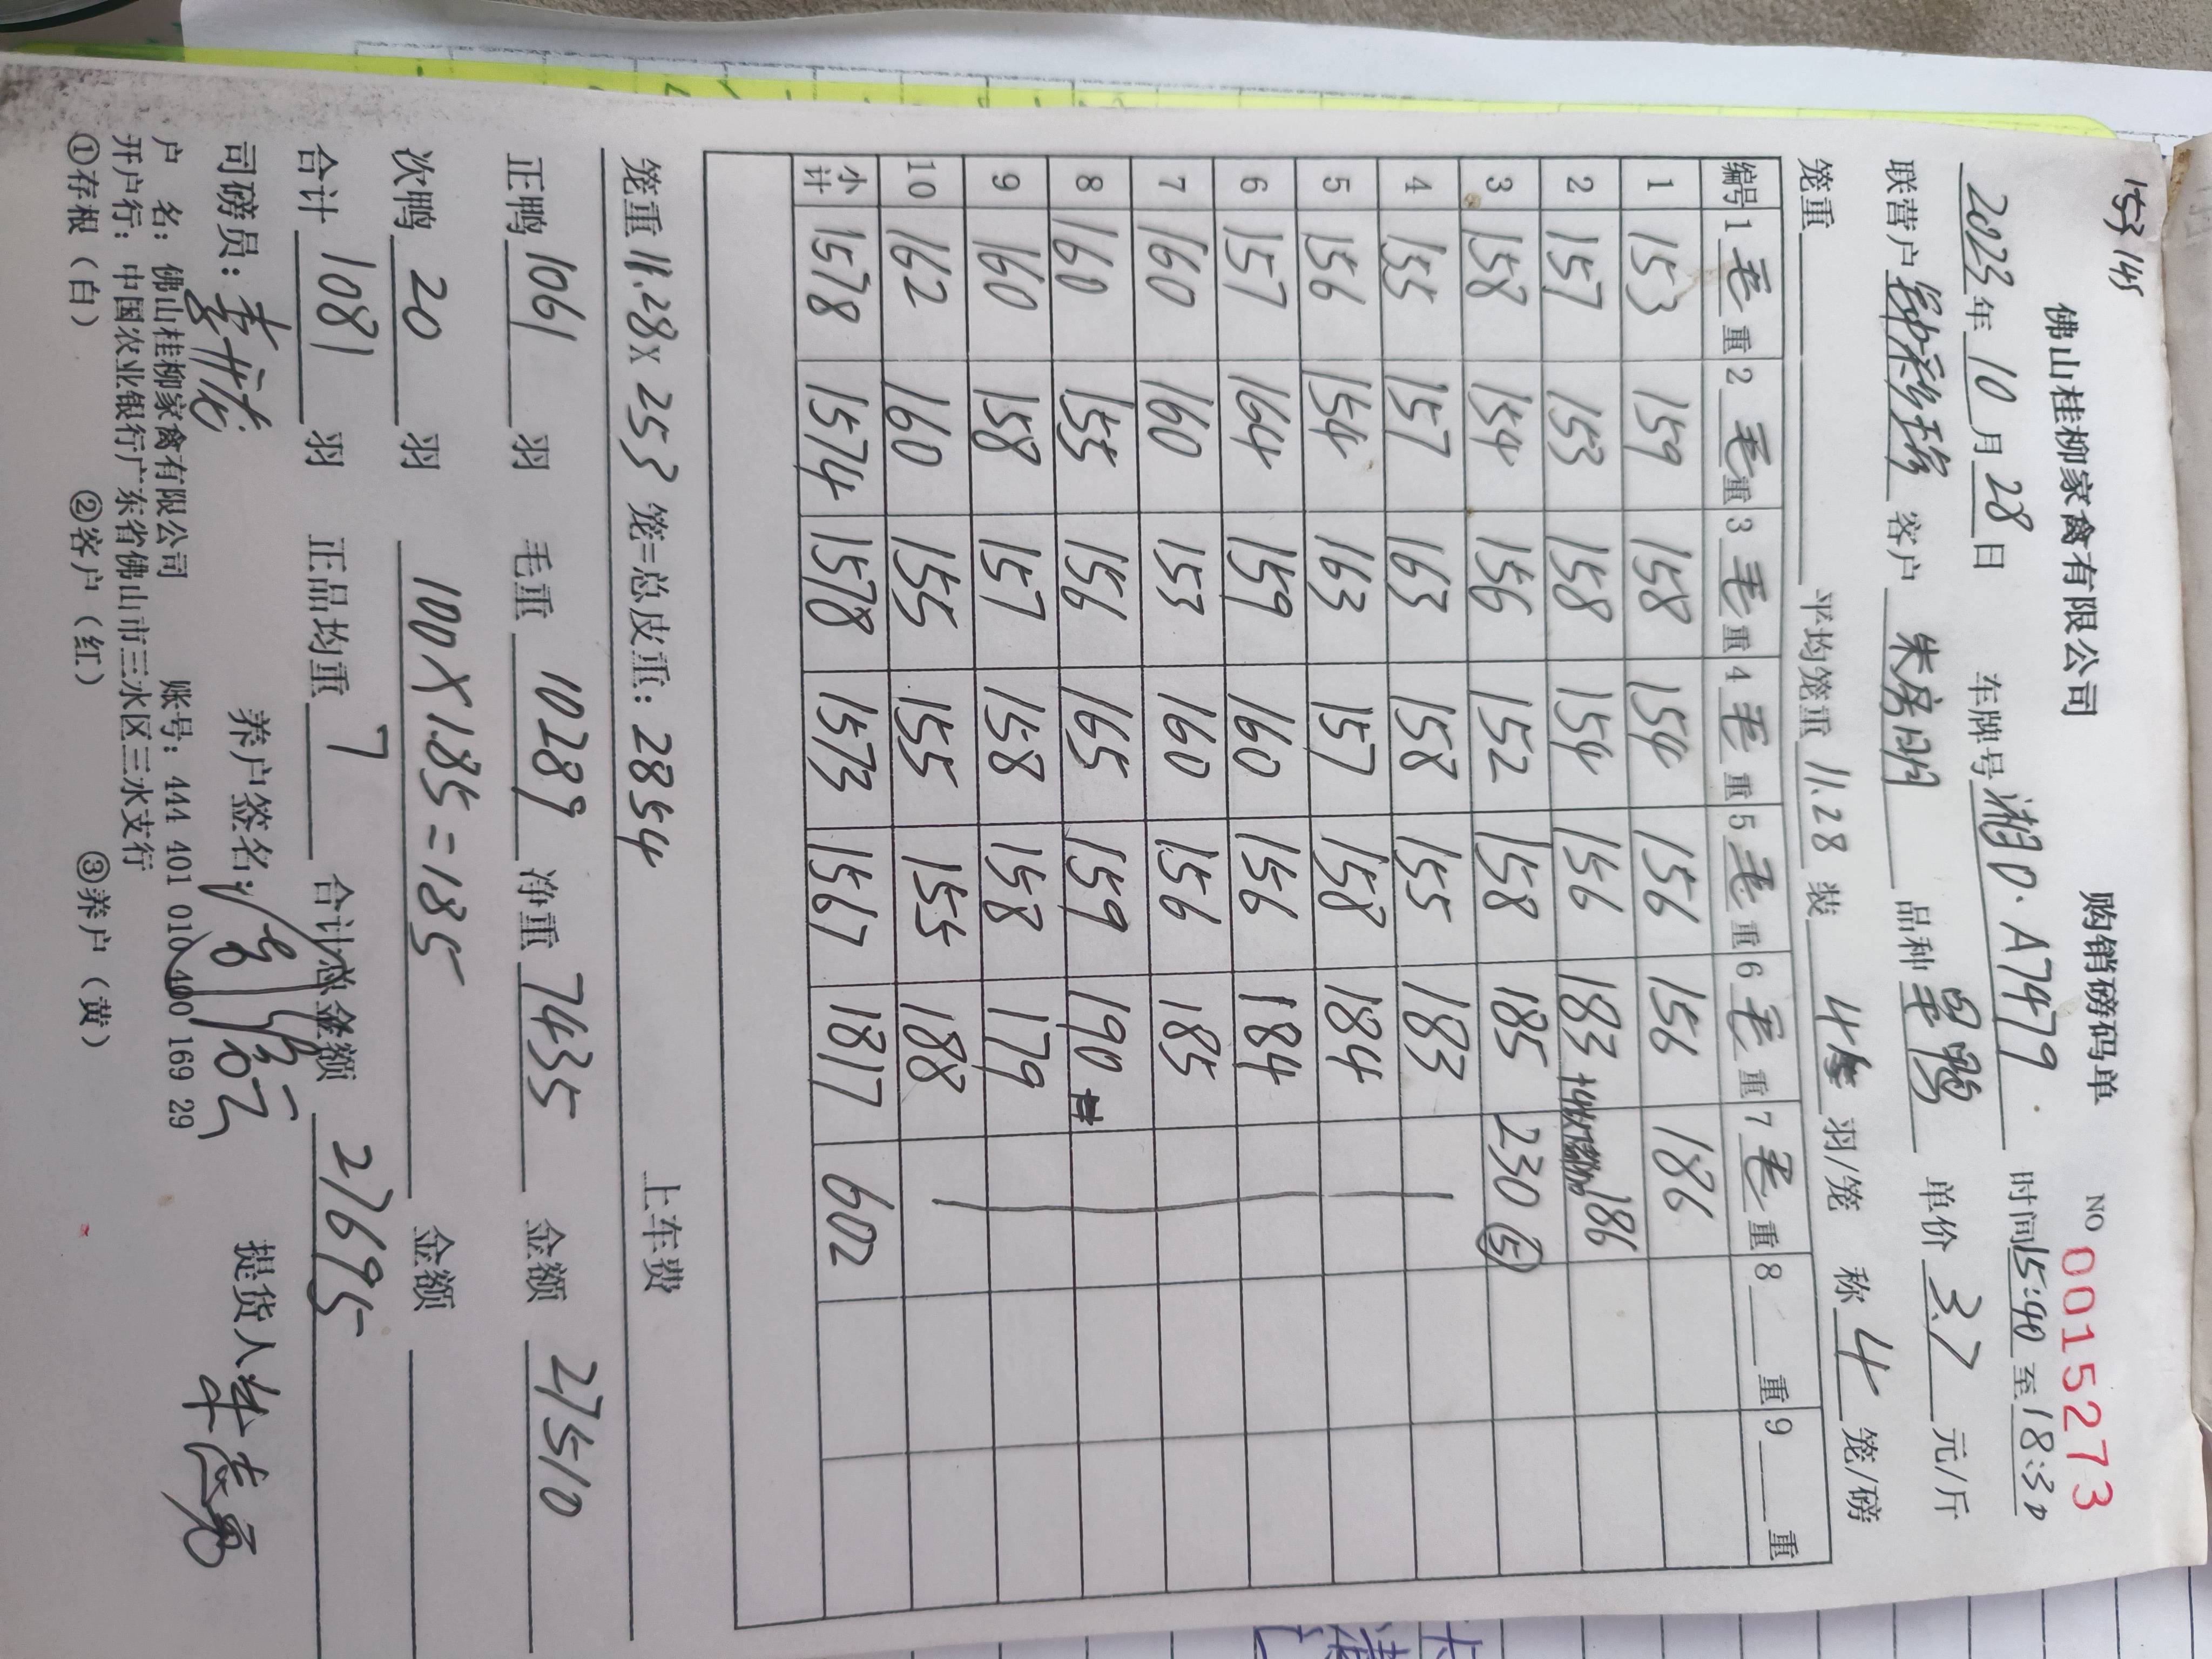 153 145
佛山桂柳家禽有限公司 购销磅码单 NO 0015273
2023年10月28日 车牌号湘D·A7479 时间15:40至18:30
联营户 客户 朱房明 品种 单价3.7元/斤
笼重 平均笼重11.28 装4羽/笼 称4笼/磅
编号 1毛重 2毛重 3毛重 4毛重 5毛重 6毛重 7毛重 8 重 9 重
1 153 159 158 154 156 156 186
2 157 153 158 154 156 183 186
3 158 154 156 152 158 185 230 ⑤
4 155 157 163 158 155 183
5 156 154 163 157 158 184
6 157 164 159 160 156 184
7 160 160 153 160 156 185
8 160 155 156 165 159 190
9 160 158 157 158 158 179
10 162 160 155 155 155 188
小计 1578 1574 1578 1573 1567 1817 602
笼重11.28×253笼=总皮重:2854 上车费
正鸭1061羽 毛重10289 净重7435 金额27510
次鸭20羽 100×1.85=185 金额
合计1081羽 正品均重7 合计总金额27695
司磅员: 养户签名: 提货人
户 名:佛山桂柳家禽有限公司 账号:444 401 010 400 169 29
开户行:中国农业银行广东省佛山市三水区三水支行
①存根(白) ②客户(红) ③养户(黄)